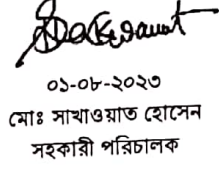 ০১-০৮-২০২৩
মোঃ সাখাওয়াত হোসেন
সহকারী পরিচালক